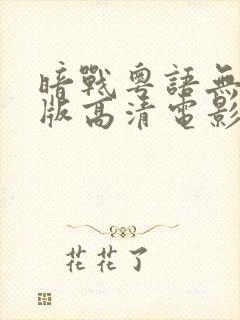 暗戰粵語無
版高清電影
花花了